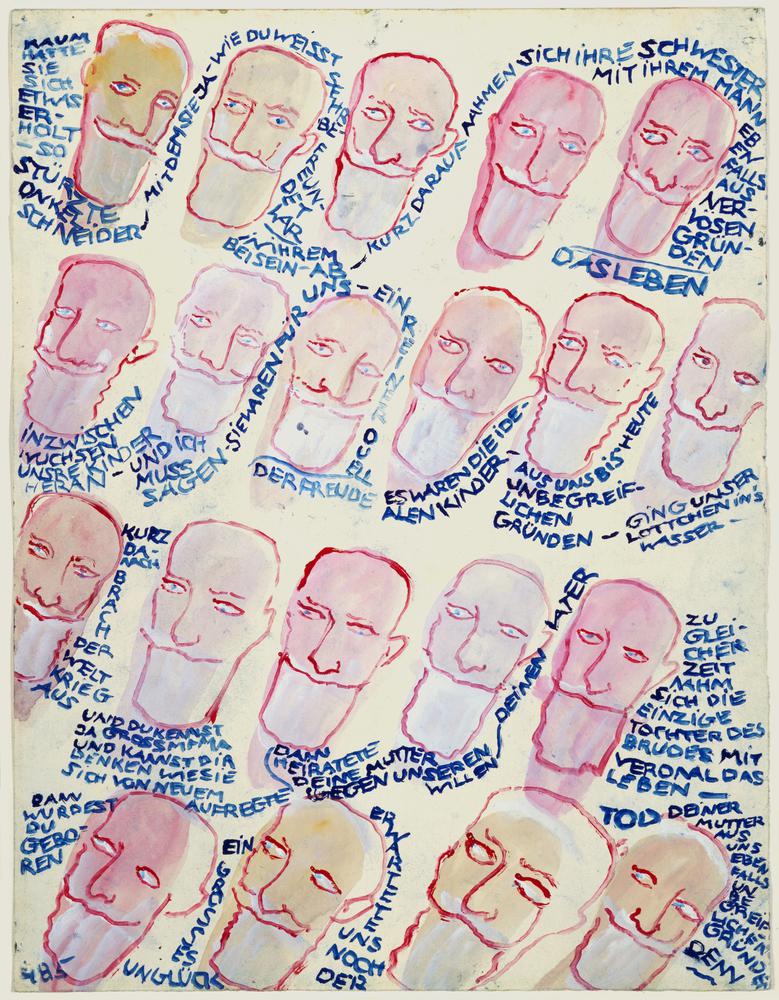 KAUM
HATTE
SIE
SICH
ETWAS
ER-
HOLT
-SO
STÜRZTE
ONKEL
SCHNEIDER-
MIT DEM SIE JA-WIE DU WEISST
SEHR
BE
FREUN-
DET
WAR
IN IHREM
BEISEIN-AB
-KURZ DARAUF NAHMEN SICH IHRE SCHWESTER
MIT IHREM MANN
EB
EN
FALLS
AUS
NER-
VOSEN
GRÜN-
DEN
DAS LEBEN
INZWISCHEN
WUCHSEN
UNSRE KINDER
HERAN-
UND ICH
MUSS
SAGEN
SIE WAREN FÜR UNS-EIN
REINER
QUELL
DER FREUDE
ES WAREN DIE IDE-
ALEN KINDER-
AUS UNS BIS HEUTE
UNBEGREIF-
LICHEN
GRÜNDEN-
GING UNSER
LOTTCHEN IN'S
WASSER-
KURZ
DA-
NACH
BRACH
DER
WELT
KRIEG
AUS
UND DU KENNST
JA GROSSMAMA
UND KANNST DIR
DENKEN WIE SIE
SICH VON NEUEM
AUFREGTE
DANN
HEIRATETE
DEINE MUTTER
GEGEN UNSEREN
WILLEN-
DEINEN VATER
ZU
GLEI-
CHER
ZEIT
NAHM
SICH DIE
EINZIGE
TOCHTER DES
BRUDES MIT
VERONAL DAS
LEBEN-
DANN
WURDEST
DU
GEBO-
REN
EIN
GROSSES
UNGLÜCK
ERWARTETE
UNS
NOCH
DER
TOD DEINER
MUTTER
AUS
UNS
EBEN
FALLS
UN
BE
GREIF-
LICHEN
GRÜNDEN
DENN
485